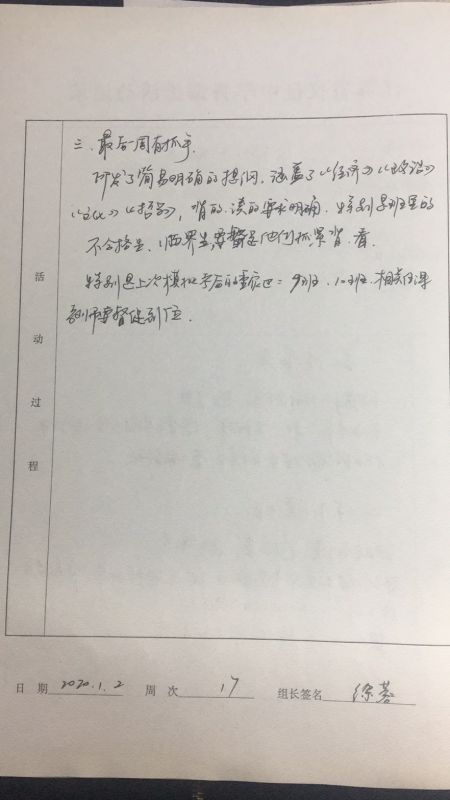 三、最后一周有抓手.
所发了简易明确的提纲,涵盖了《经济》《政治》
《文化》《哲学》,背的、读的要求明确.特别是班里的
不合格生、临界生要督促他们抓紧背、看.
特别是上次模拟考后的重灾区:9班、10班.相关任课
教师要督促到位.
活动过程
日 期 2020.1.2 周 次 17 组长签名 徐蓉